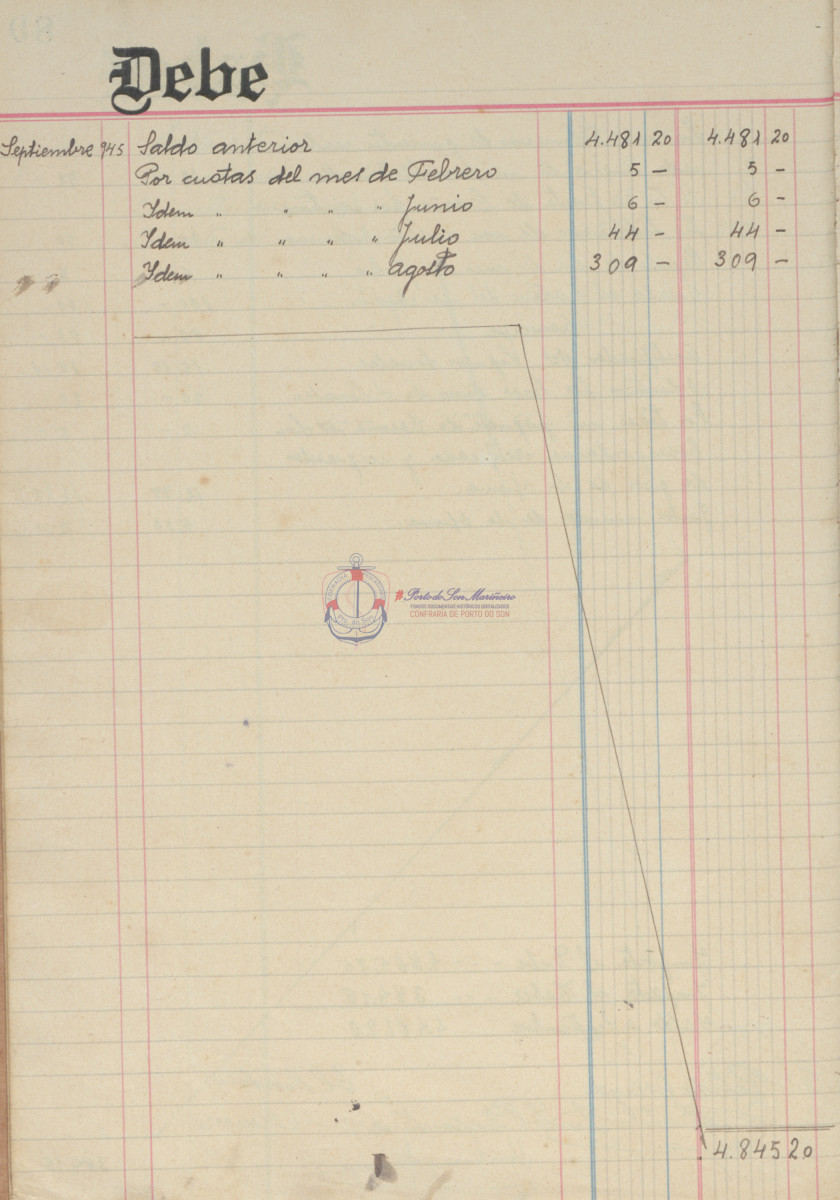 Debe
Septiembre 945 Saldo anterior 4.481 20 4.481 20
Por cuotas del mes de Febrero 5 — 5 -
Ydem " " " " Junio 6 - 6 -
Ydem " " " " Julio 44 - 44 -
Ydem " " " " agosto 309 — 309 —
#Porto do Son Mariñeiro
CONFRARIA DE PORTO DO SON
4.845 20